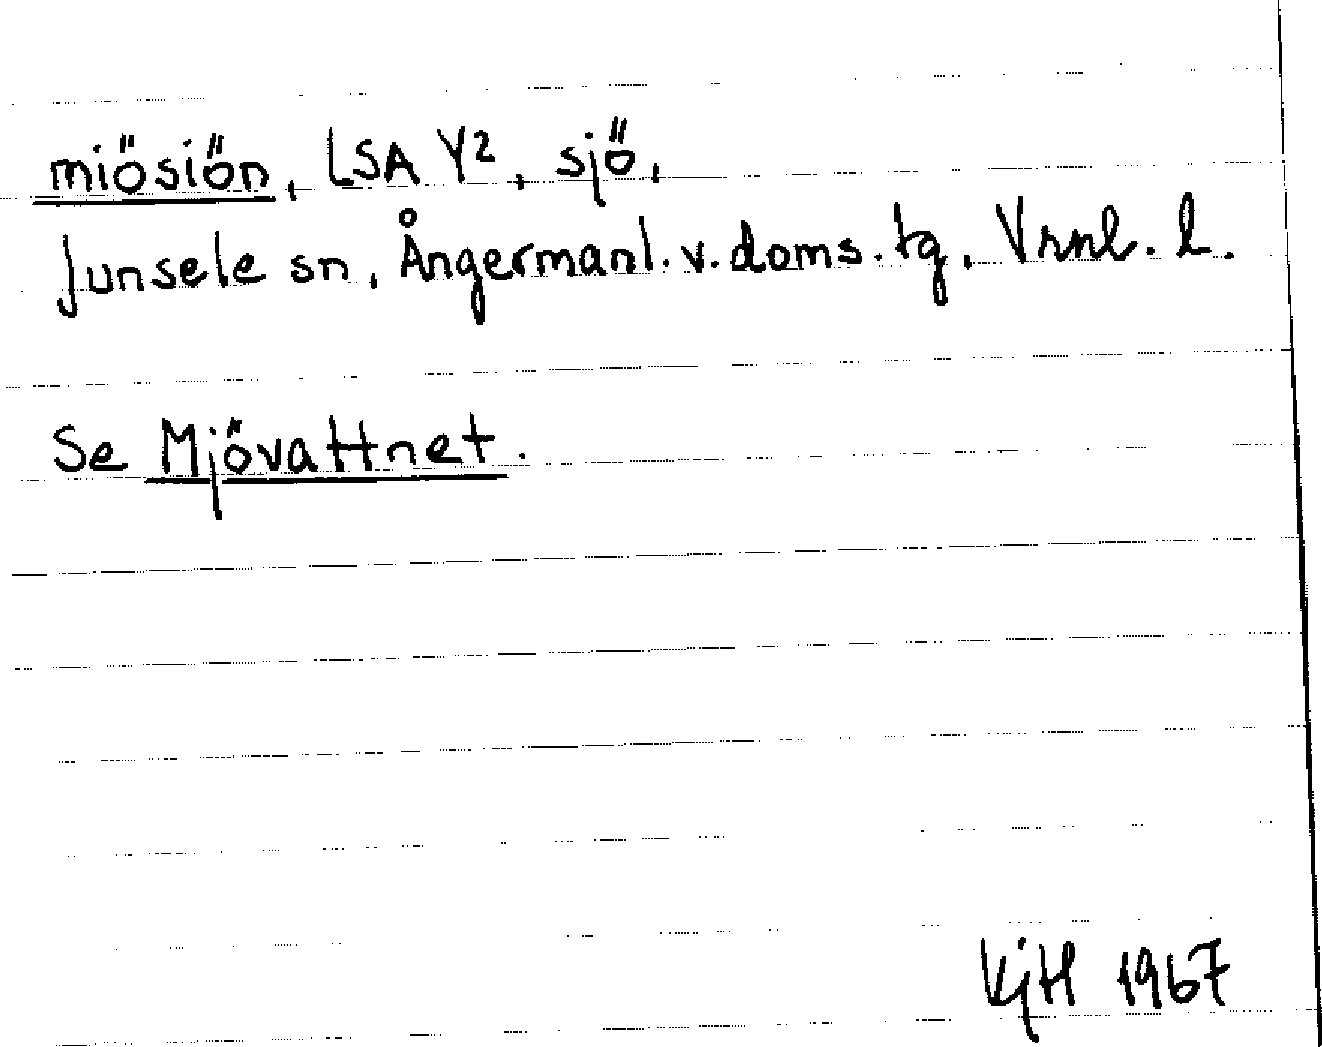 miösiön, LSA Y2, sjö,
Junsele sn, Ångermanl. v. doms. tg, Vrnl. l.
Se Mjövattnet.
KjH 1967